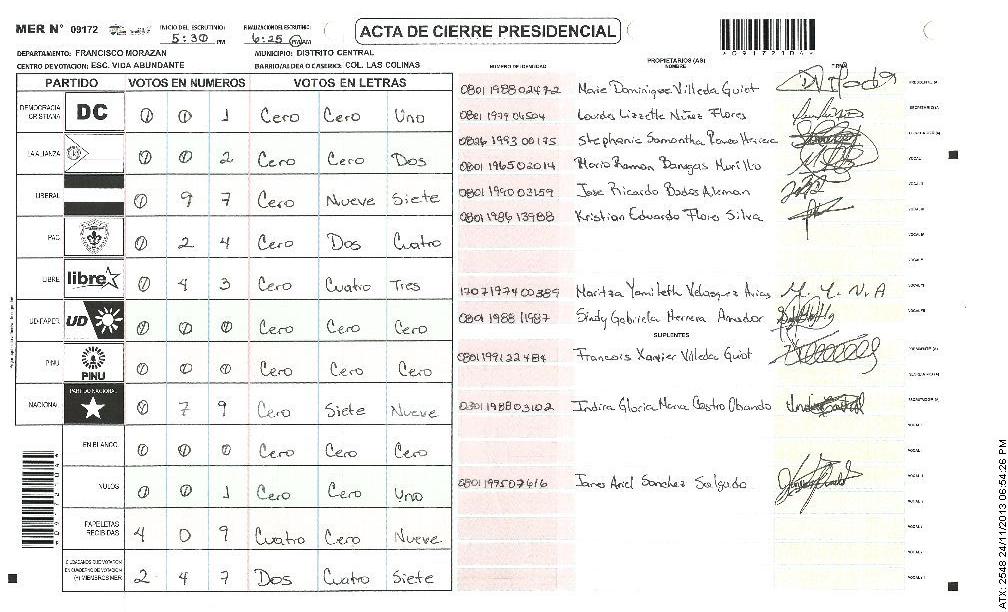 MER N° 09172
INICIO DEL ESCRUTINIO: 5:30 PM
FINALIZACION ESCRUTINIO: 6:25 PM
ACTA DE CIERRE PRESIDENCIAL
*09172104*
DEPARTAMENTO: FRANCISCO MORAZAN
MUNICIPIO: DISTRITO CENTRAL
CENTRO DE VOTACION: ESC. VIDA ABUNDANTE
BARRIO/ALDEA O CASERIO: COL. LAS COLINAS
PARTIDO VOTOS EN NUMEROS VOTOS EN LETRAS
DEMOCRACIA CRISTIANA DC 0 0 1 Cero Cero Uno
LA ALIANZA 0 0 2 Cero Cero Dos
LIBERAL 0 9 7 Cero Nueve Siete
PAC 0 2 4 Cero Dos Cuatro
LIBRE libre 0 4 3 Cero Cuatro Tres
UD-FAPER UD 0 0 0 Cero Cero Cero
PINU PINU 0 0 0 Cero Cero Cero
NACIONAL PARTIDO NACIONAL 0 7 9 Cero Siete Nueve
EN BLANCO 0 0 0 Cero Cero Cero
NULOS 0 0 1 Cero Cero Uno
PAPELETAS RECIBIDAS 4 0 9 Cuatro Cero Nueve
CIUDADANOS QUE VOTARON EN CUADERNO DE VOTACION (+) MIEMBROS MER 2 4 7 Dos Cuatro Siete
NUMERO DE IDENTIDAD PROPIETARIOS (AS) NOMBRE FIRMA
0801 1988 02472 Marie Dominique Villeda Guiot PRESIDENTE (A)
0801 1979 04504 Lourdes Lizzette Nuñez Flores SECRETARIO/A
0826 1993 00175 Stephanie Samantha Romero Herrera ESCRUTADOR (A)
0801 1965 02014 Mario Ramon Banegas Murillo VOCAL I
0801 1990 03159 Jose Ricardo Bados Aleman VOCAL II
0801 1986 13988 Kristian Eduardo Flores Silva VOCAL III
VOCAL IV
VOCAL V
1707 1974 00389 Maritza Yamileth Velasquez Arias M. Y. V. A VOCAL VI
0801 1988 11987 Sindy Gabriela Herrera Amador VOCAL VII
SUPLENTES
0801 1991 22484 Francois Xavier Villeda Guiot PRESIDENTE (A)
SECRETARIO (A)
0301 1988 03102 Indira Gloria Maria Castro Obando ESCRUTADOR (A)
VOCAL I
0801 1995 07616 Janes Ariel Sanchez Salgado
ATX: 2548 24/11/2013 06:54:26 PM